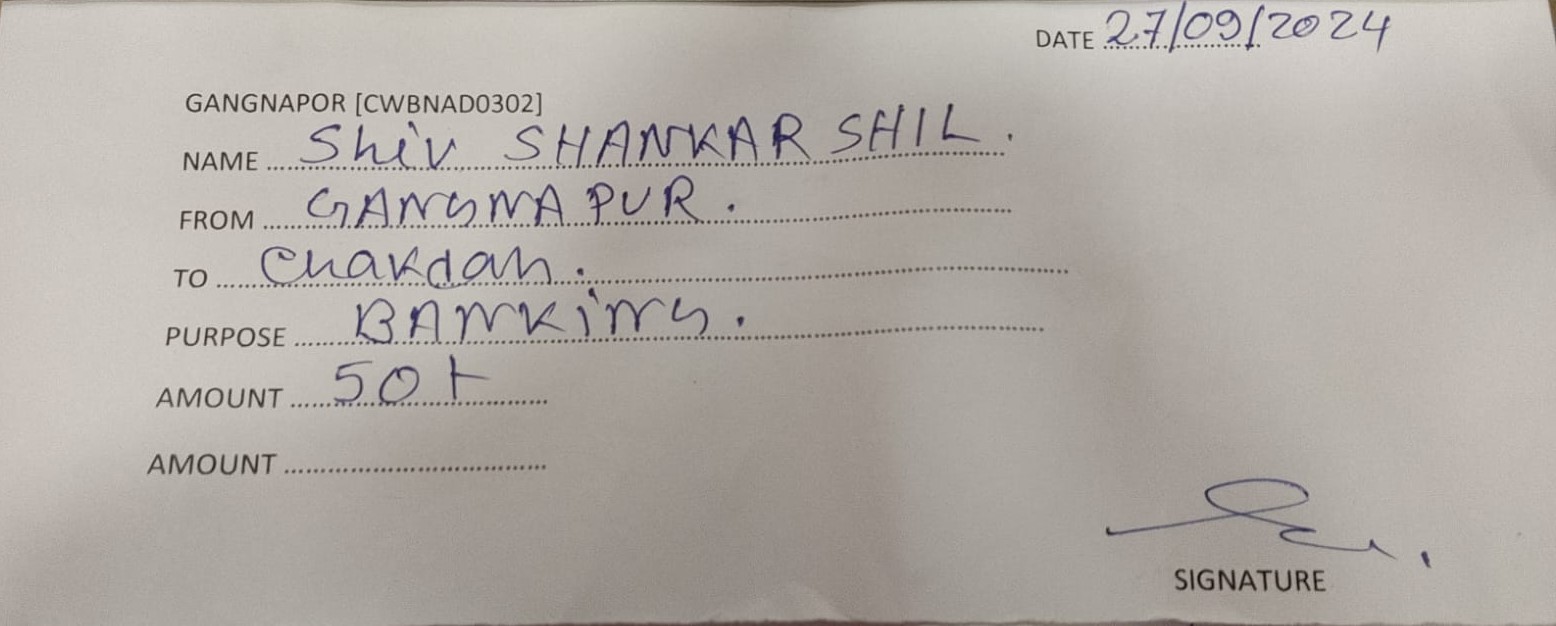 DATE 27/09/2024
GANGNAPOR [CWBNAD0302]
NAME Shiv SHANKAR SHIL.
FROM GANGNAPUR.
TO Chakdah.
PURPOSE BANKiNG.
AMOUNT 50/-
AMOUNT
SIGNATURE